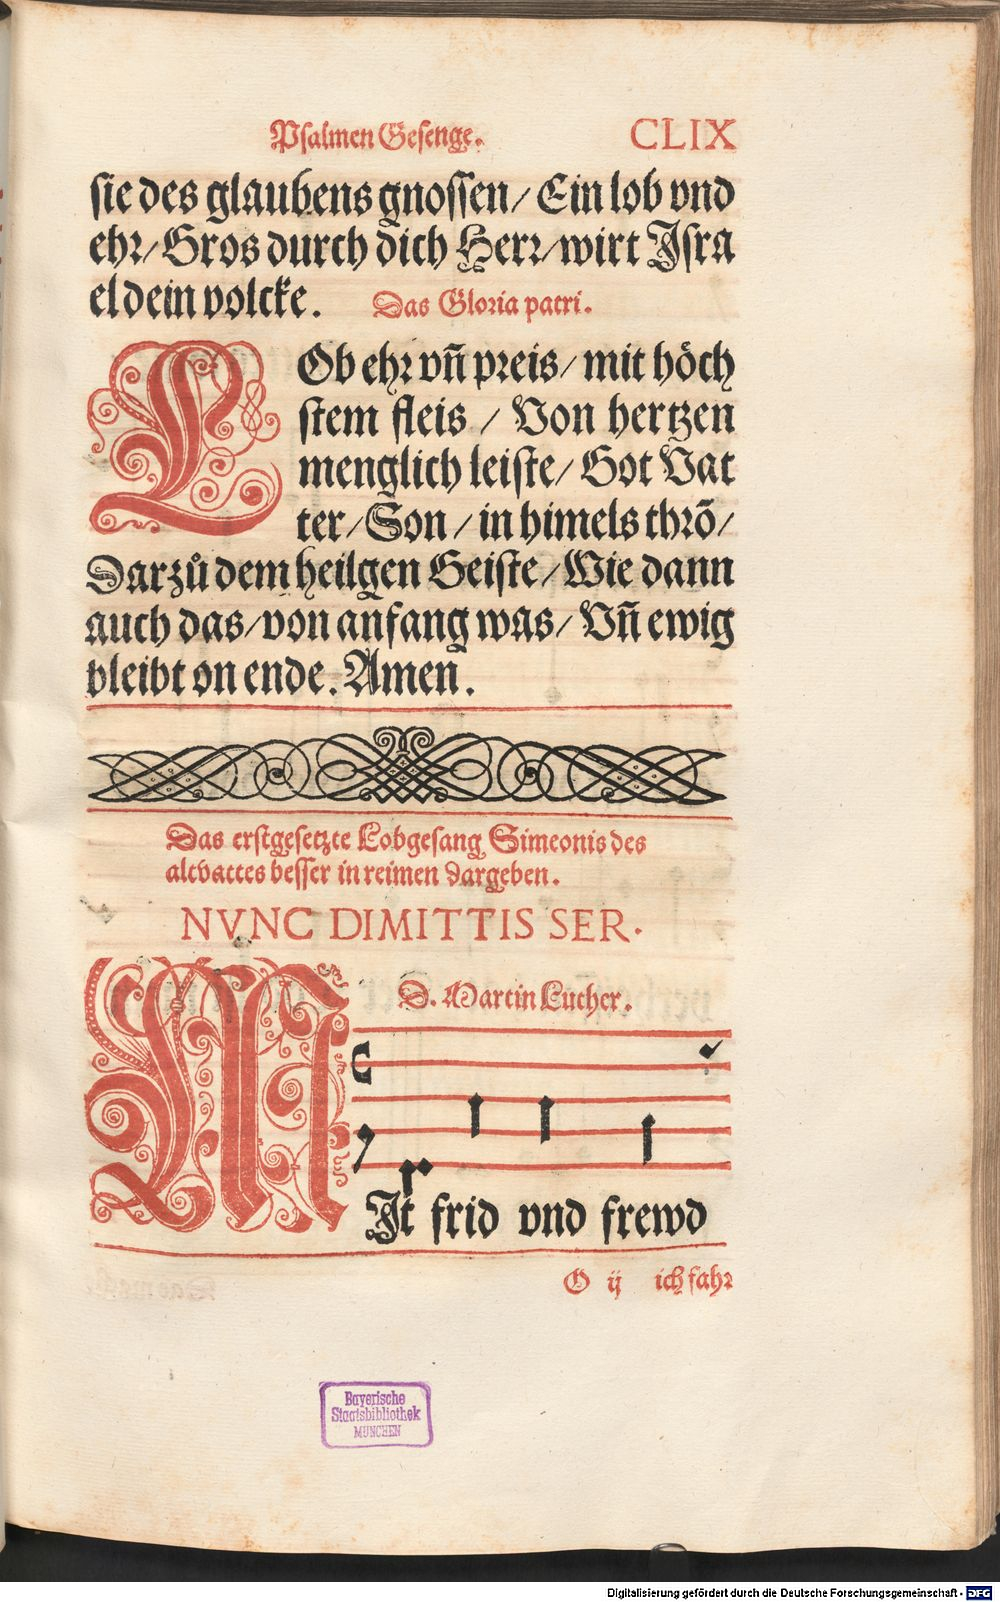 Psalmen Gesenge. CLIX
sie des glaubens gnossen/ Ein lob vnd
ehr/ Gros durch dich Herr/ wirt Isra
el dein volcke. Das Gloria patri.
LOb ehr vñ preis/ mit höch
stem fleis / Von hertzen
menglich leiste/ Got Vat
ter/ Son / in himels thrõ/
Darzů dem heilgen Geiste/ Wie dann
auch das/ von anfang was/ Vñ ewig
bleibt on ende. Amen.
Das erstgesetzte Lobgesang Simeonis des
altvattes besser in reimen dargeben.
NVNC DIMITTIS SER.
D. Martin Luther.
MIt frid vnd frewd
O ij ich fahr
Bayerische
Staatsbibliothek
MÜNCHEN
Digitalisierung gefördert durch die Deutsche Forschungsgemeinschaft - DFG